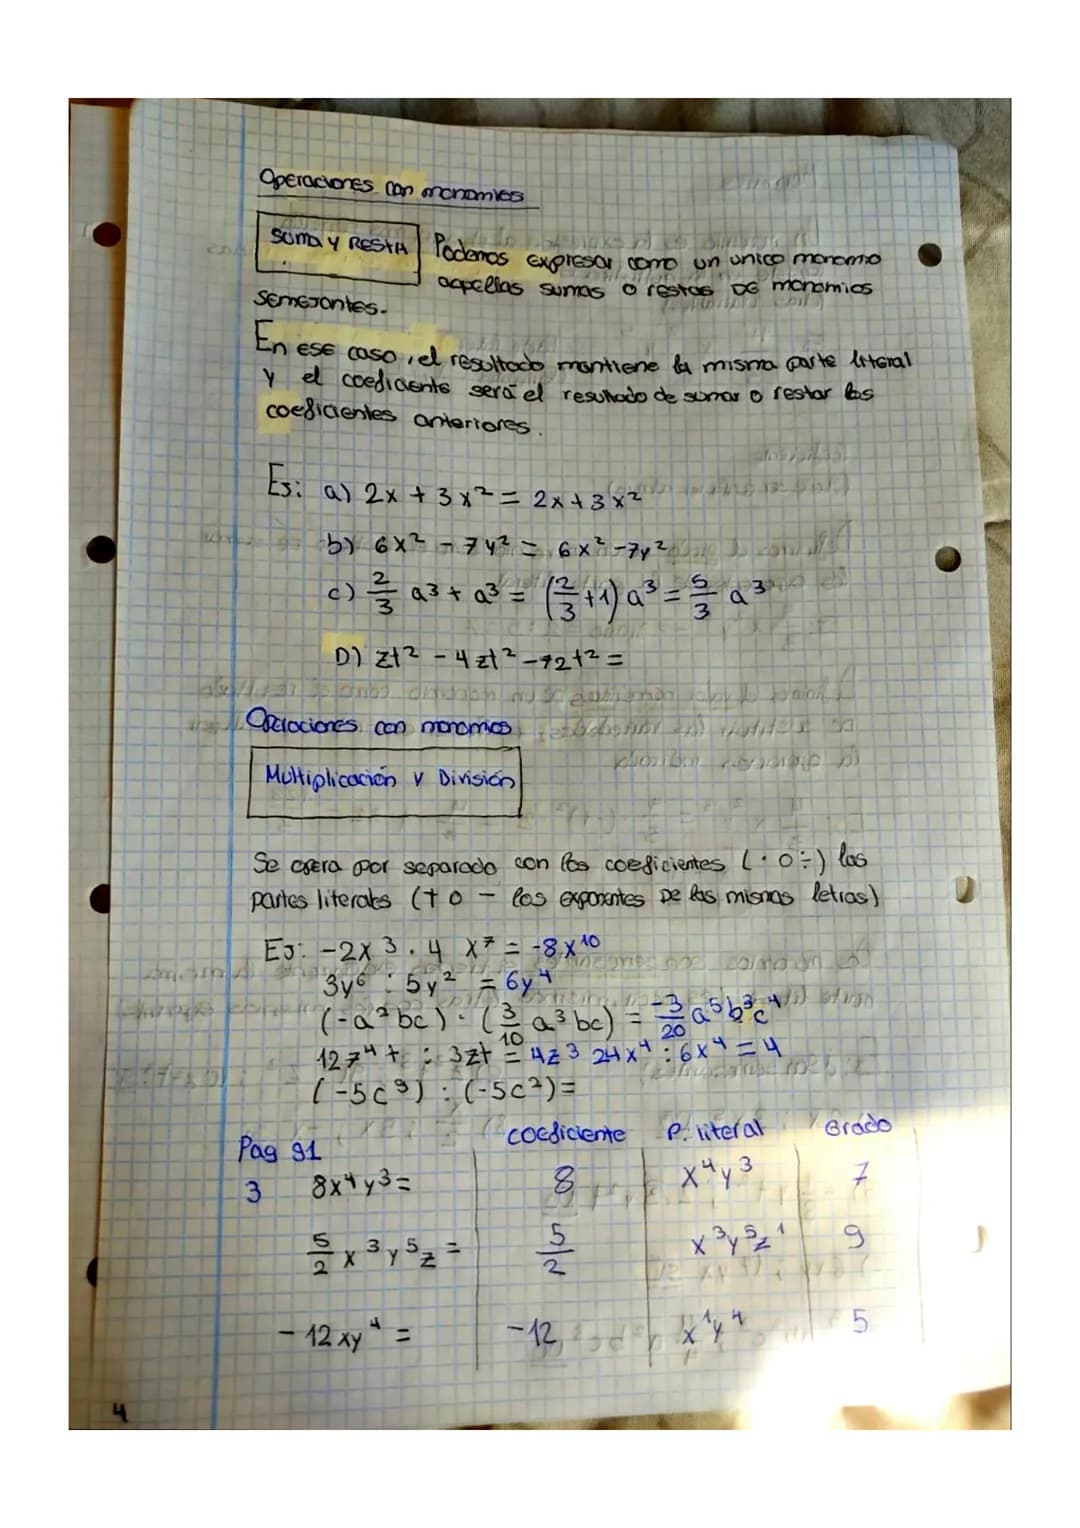 Operaciones con monomios
SUMA Y RESTA Podemos expresar como un único monomio
aqpellas sumas o restas DE monomios
semejantes.
En ese caso, el resultado mantiene la misma parte literal
y el coeficiente será el resultado de sumar o restar los
coeficientes anteriores.
Ej: a) 2x + 3x² = 2x + 3x²
b) 6x² - 7y² = 6x² - 7y²
c) 2/3 a³ + a³ = (2/3 + 1) a³ = 5/3 a³
D) zt² - 4zt² - 72t² =
Operaciones con monomios
Multiplicación y División
Se opera por separado con los coeficientes (· o ÷) las
partes literales (+ o - los exponentes de las mismas letras)
EJ: -2x³ · 4 x⁷ = -8x¹⁰
3y⁶ : 5y² = 6y⁴
(-a²bc) · (3/10 a³bc) = -3/20 a⁵b³c⁴
12z⁴t : 3zt = 4z³ 24x⁴ : 6x⁴ = 4
(-5c⁹) : (-5c²) =
Pag 91 coeficiente P. literal Grado
3 8x⁴y³ = 8 x⁴y³ 7
5/2 x³y⁵z = 5/2 x³y⁵z¹ 9
-12xy⁴ = -12 x¹y⁴ 5
4